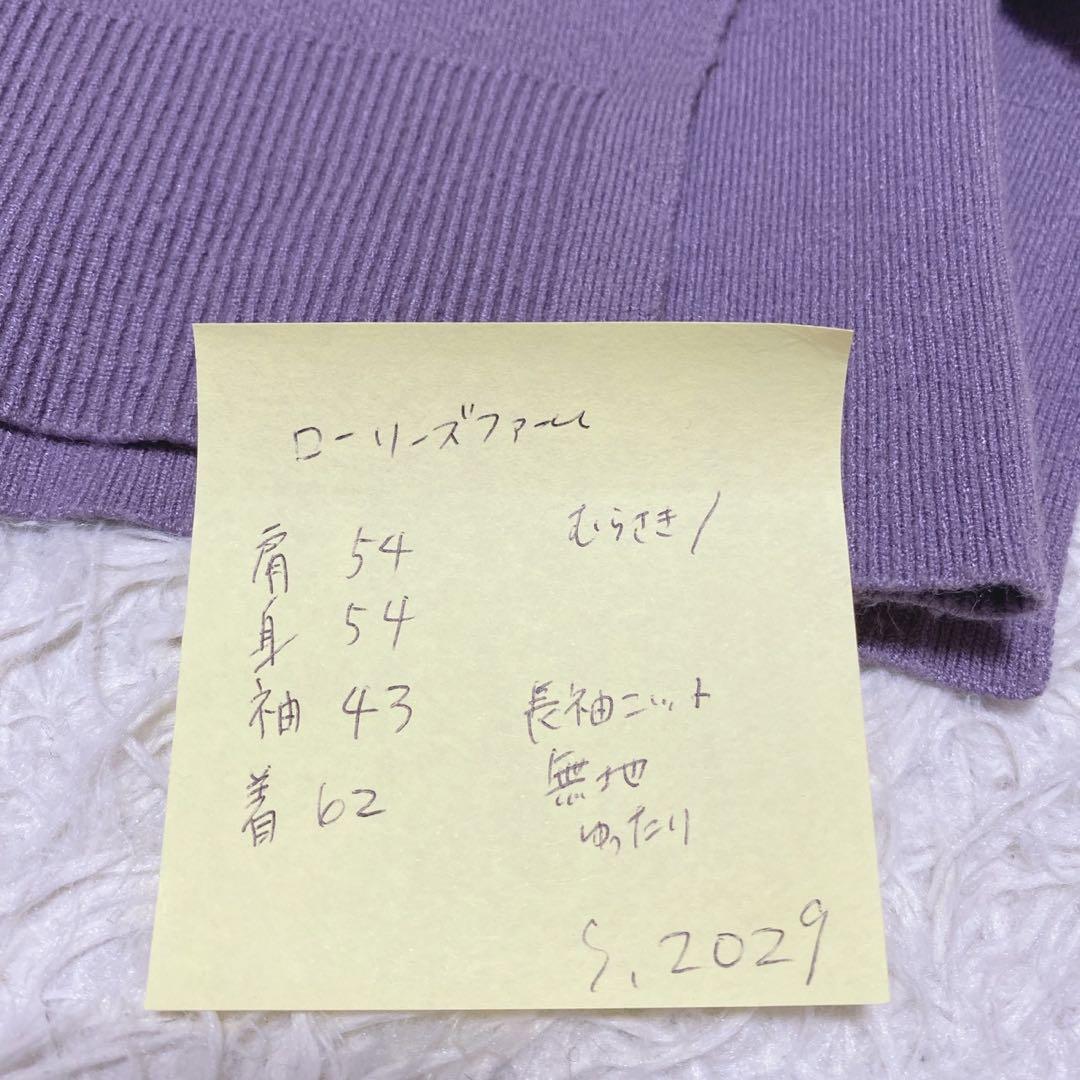 ローリーズファーム
むらさき/
肩 54
身 54
袖 43
着 62
長袖ニット
無地
ゆったり
S,2029